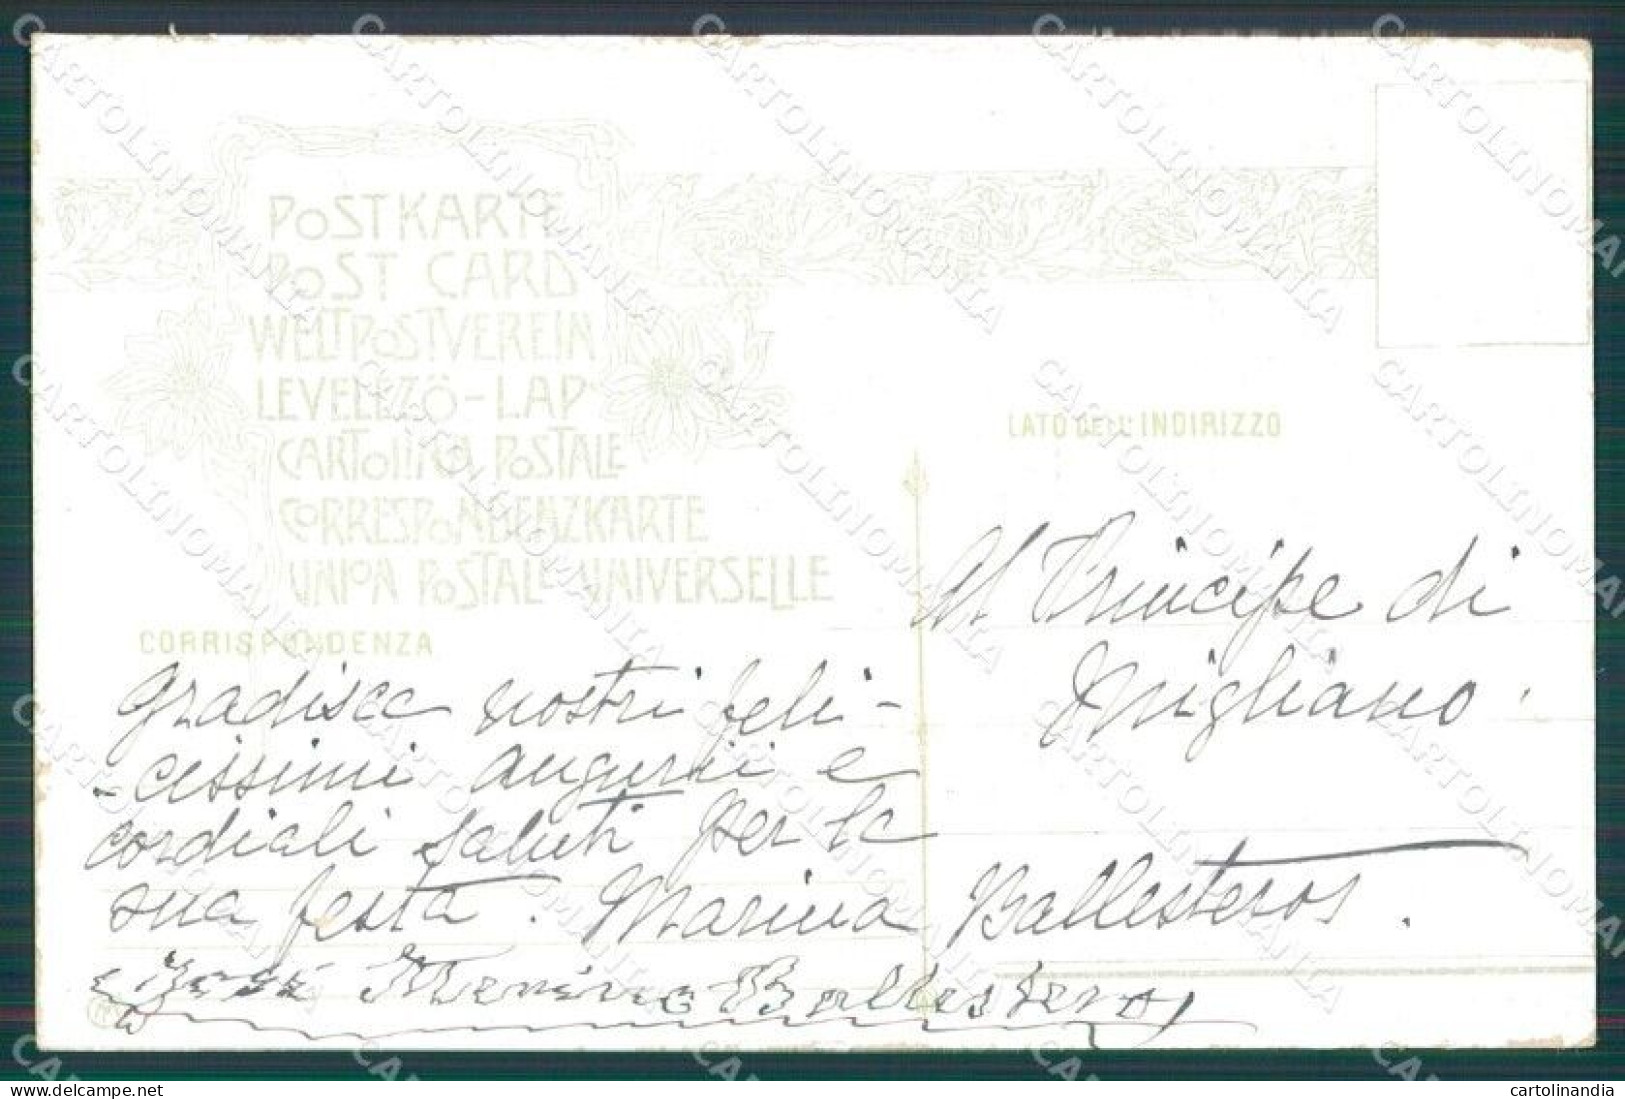 POSTKARTE
POST CARD
WELTPOSTVEREIN
LEVELEZÖ-LAP
CARTOLINA POSTALE
CORRESPONDENZKARTE
UNION POSTALE UNIVERSELLE
CORRISPONDENZA
Gradisca nostri feli-
-cissimi augurii e
cordiali saluti per la
sua festa. Marina Ballesteros.
José Ballesteros
LATO DELL'INDIRIZZO
Al Principe di
Migliano.
CARTOLINOMANIA
cartolinandia.it
cartolinandia